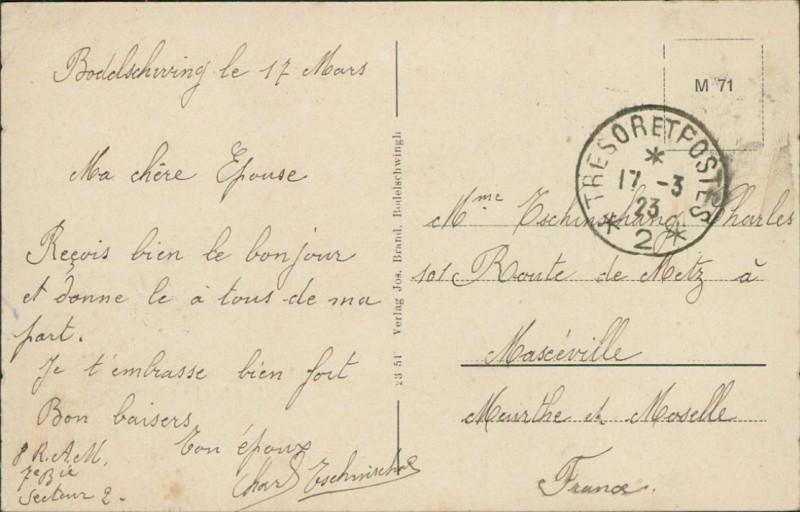 Bodelschwing le 17 Mars
Ma chère Epouse
Reçois bien le bonjour
et donne le à tous de ma
part.
Je t'embrasse bien fort
Bon baisers
Ton époux
8 R.A.M.
7e Bie
Secteur 2.
23 51 Verlag Jos. Brand, Bodelschwingh
M 71
TRESOR ET POSTES
17 -3
23
* 2 *
Mme Charles
101 Route de Metz à
Maxéville
Meurthe et Moselle
France.